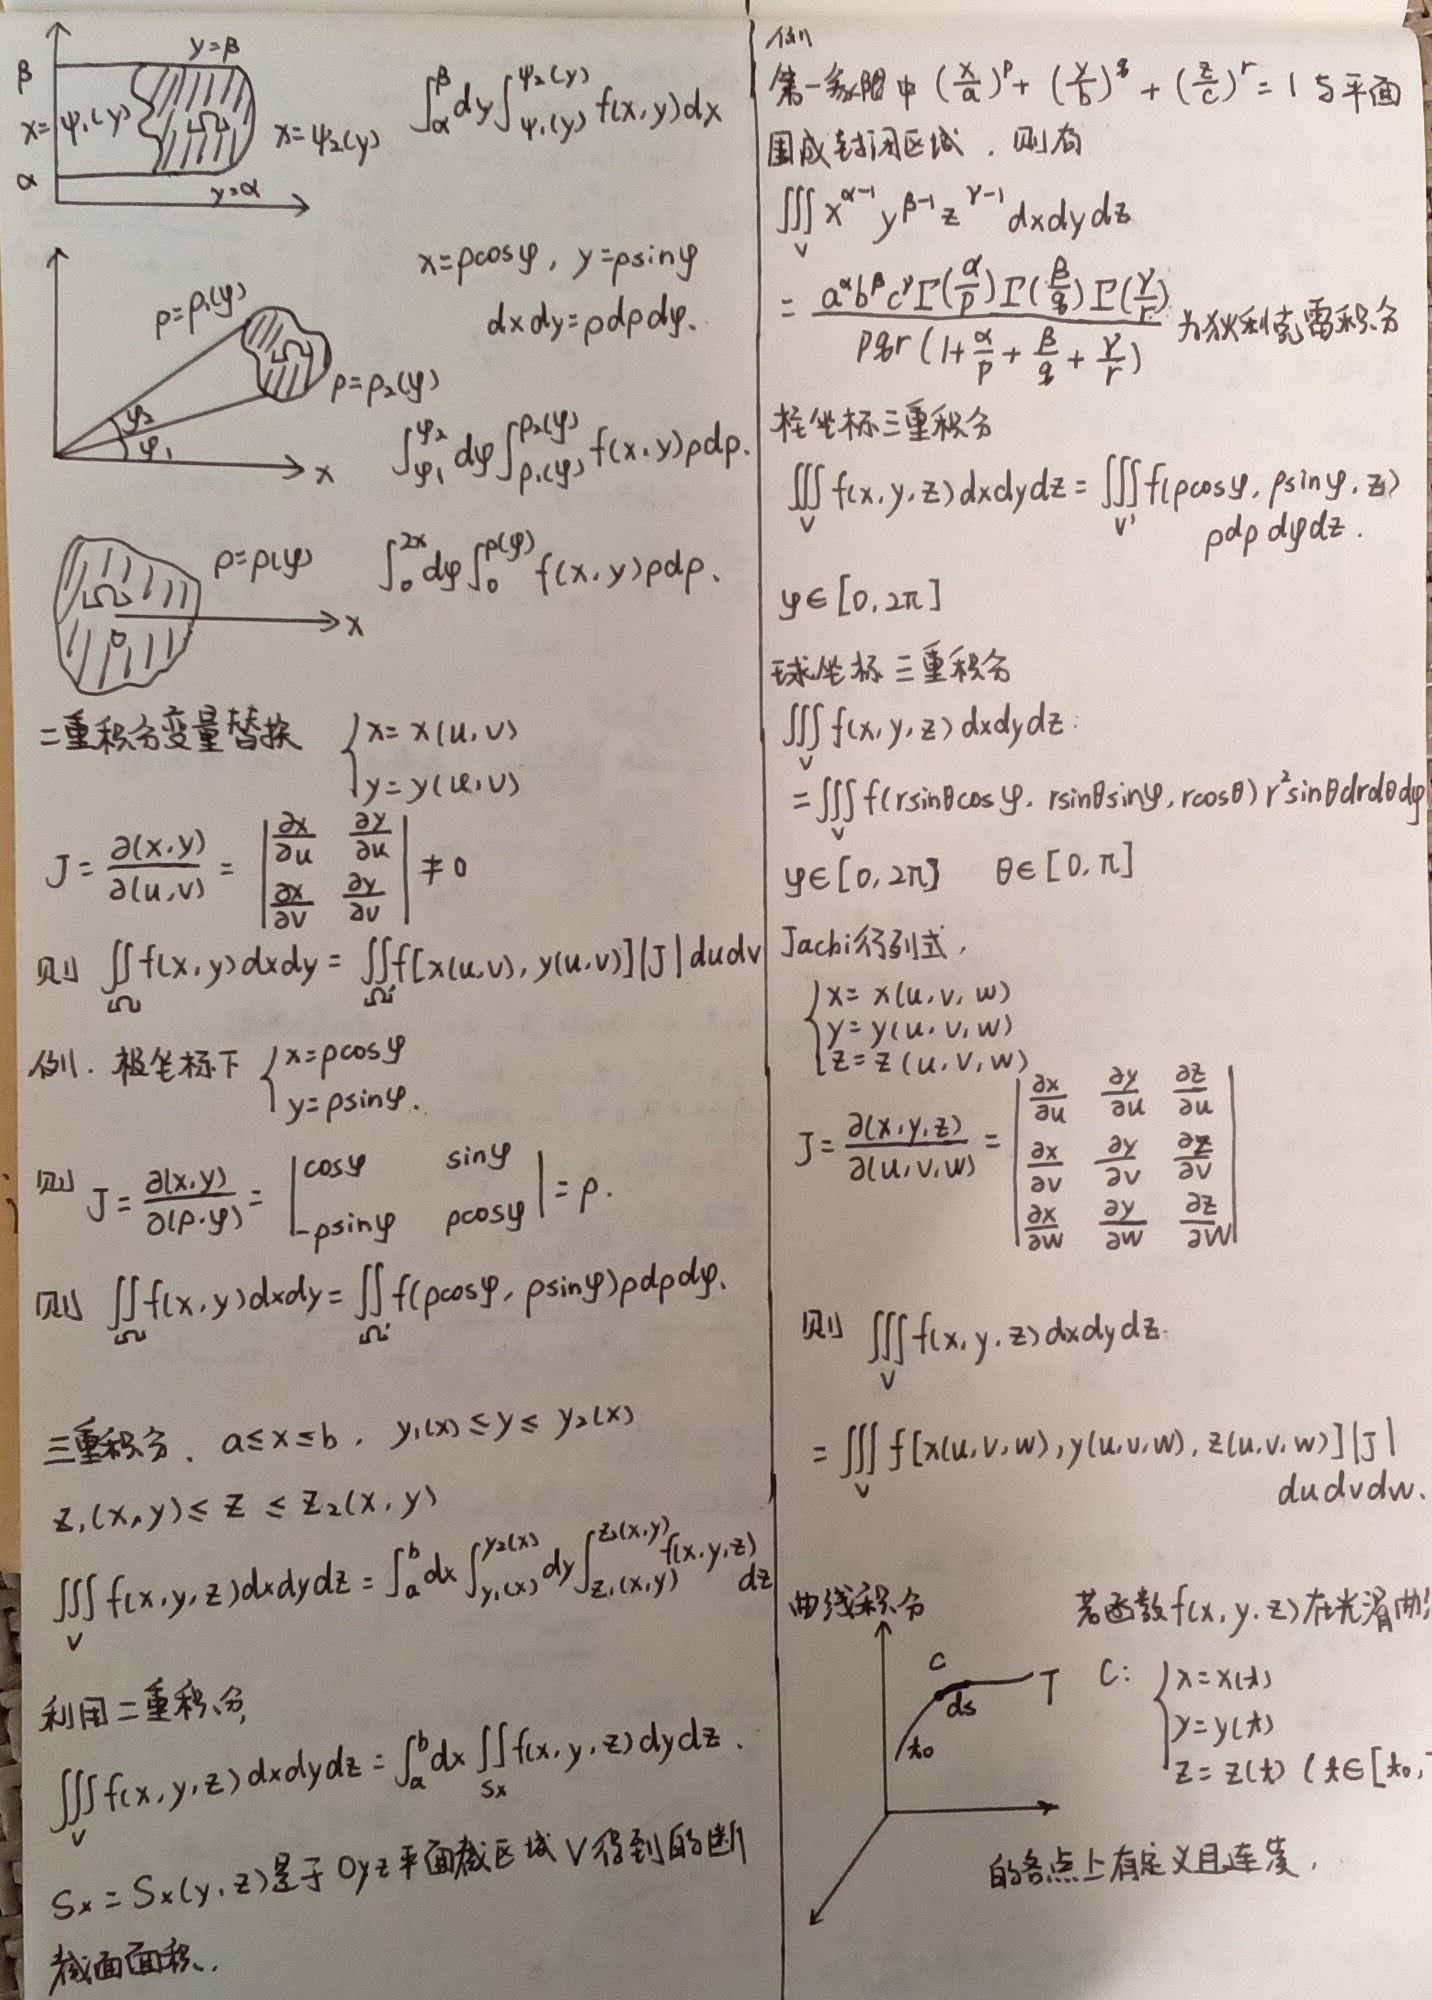 y=β
β
x=ψ₁(y)
Ω
x=ψ₂(y)
α
y=α
∫_α^β dy ∫_{ψ₁(y)}^{ψ₂(y)} f(x,y)dx
x=ρcosφ, y=ρsinφ
dxdy=ρdρdφ.
ρ=ρ₁(φ)
Ω
ρ=ρ₂(φ)
φ₂
φ₁
x
∫_{φ₁}^{φ₂} dφ ∫_{ρ₁(φ)}^{ρ₂(φ)} f(x,y)ρdρ.
ρ=ρ(φ)
Ω
O
x
∫_0^{2x} dφ ∫_0^{ρ(φ)} f(x,y)ρdρ.
二重积分变量替换 { x=x(u,v)
y=y(u,v)
J = ∂(x,y)/∂(u,v) = | ∂x/∂u ∂y/∂u
∂x/∂v ∂y/∂v | ≠ 0
则 ∬_Ω f(x,y)dxdy = ∬_Ω' f[x(u,v), y(u,v)]|J|dudv
例. 极坐标下 { x=ρcosφ
y=ρsinφ.
则 J = ∂(x,y)/∂(ρ,φ) = | cosφ sinφ
-ρsinφ ρcosφ | = ρ.
则 ∬_Ω f(x,y)dxdy = ∬_Ω' f(ρcosφ, ρsinφ)ρdρdφ.
三重积分. a≤x≤b, y₁(x)≤y≤y₂(x)
z₁(x,y)≤z≤z₂(x,y)
∭_V f(x,y,z)dxdydz = ∫_a^b dx ∫_{y₁(x)}^{y₂(x)} dy ∫_{z₁(x,y)}^{z₂(x,y)} f(x,y,z)
dz
利用二重积分,
∭_V f(x,y,z)dxdydz = ∫_a^b dx ∬_{Sx} f(x,y,z)dydz.
Sx = Sx(y,z)是于Oyz平面截区域V得到的断
截面面积.
例
第一象限中 (x/a)^p + (y/b)^q + (z/c)^r = 1 与平面
围成封闭区域, 则有
∭_V x^{α-1} y^{β-1} z^{γ-1} dxdydz
= a^α b^β c^γ Γ(α/p) Γ(β/q) Γ(γ/r) / pqr(1+α/p+β/q+γ/r) 为狄利克雷积分
柱坐标三重积分
∭_V f(x,y,z)dxdydz = ∭_V' f(ρcosφ, ρsinφ, z)
ρdρdφdz.
φ∈[0,2π]
球坐标三重积分
∭_V f(x,y,z)dxdydz
= ∭_V f(rsinθcosφ, rsinθsinφ, rcosθ) r²sinθdrdθdφ
φ∈[0,2π] θ∈[0,π]
Jacbi行列式,
{ x=x(u,v,w)
y=y(u,v,w)
z=z(u,v,w)
J = ∂(x,y,z)/∂(u,v,w) = | ∂x/∂u ∂y/∂u ∂z/∂u
∂x/∂v ∂y/∂v ∂z/∂v
∂x/∂w ∂y/∂w ∂z/∂w |
则 ∭_V f(x,y,z)dxdydz
= ∭_V f[x(u,v,w), y(u,v,w), z(u,v,w)]|J|
dudvdw.
曲线积分 若函数f(x,y,z)在光滑曲
C
ds
T
t₀
C: { x=x(t)
y=y(t)
z=z(t) (t∈[t₀,
的各点上有定义且连续,